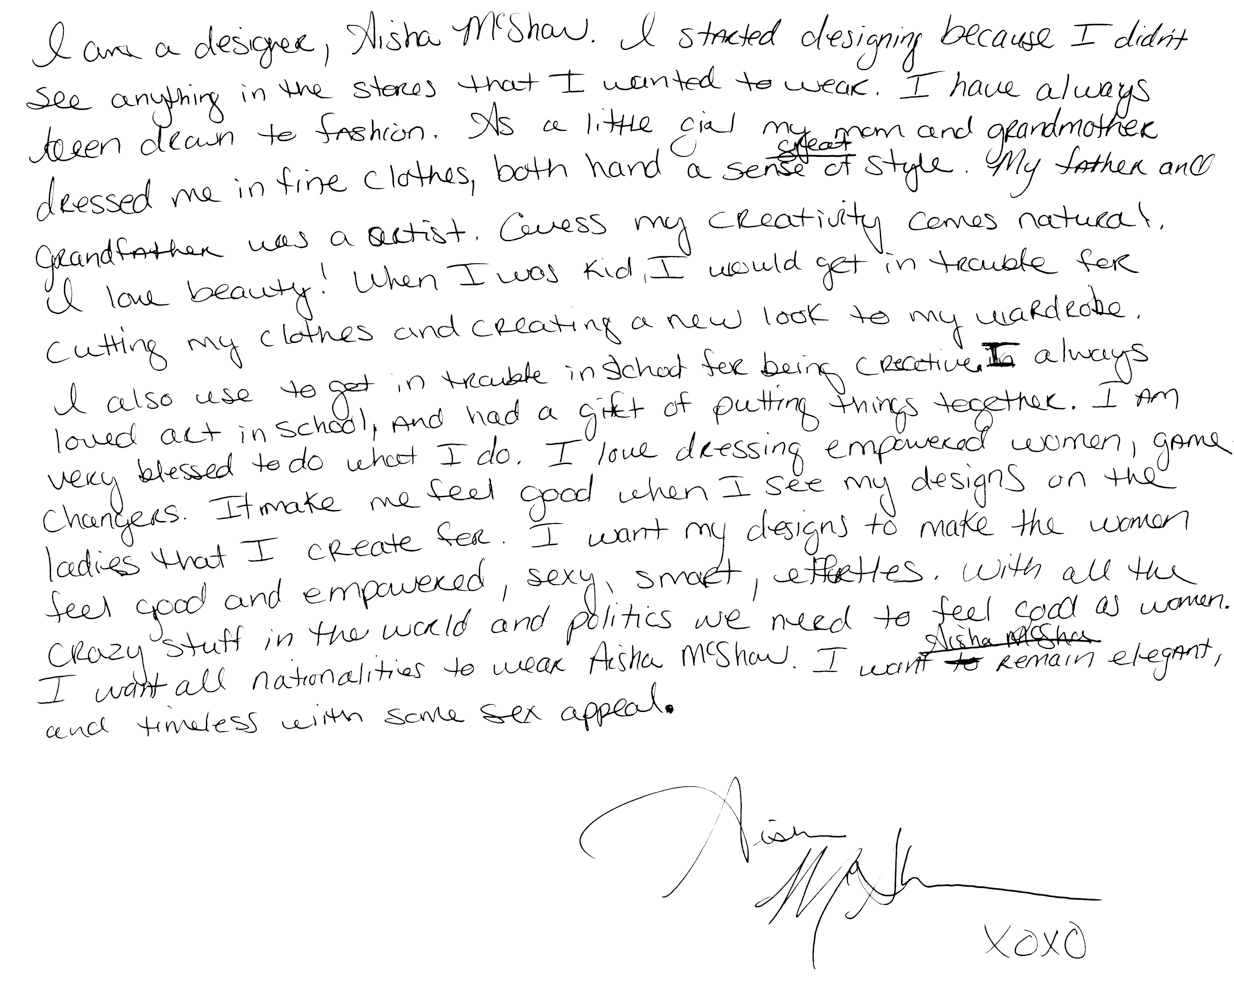 I am a designer, Aisha McShaw. I started designing because I didn't
see anything in the stores that I wanted to wear. I have always
been drawn to fashion. As a little girl my mom and grandmother
great
dressed me in fine clothes, both hand a sense of style. My father and
grandfather was a artist. Guess my creativity comes natural.
I love beauty! When I was kid, I would get in trouble for
cutting my clothes and creating a new look to my wardrobe.
I also use to get in trouble in school for being creative. I always
loved art in school, and had a gift of putting things together. I am
very blessed to do what I do. I love dressing empowered women, game
changers. It make me feel good when I see my designs on the
ladies that I create for. I want my designs to make the women
feel good and empowered, sexy, smart, effortles. With all the
crazy stuff in the world and politics we need to feel good as women.
Aisha McShaw
I want all nationalities to wear Aisha McShaw. I want to remain elegant,
and timeless with some sex appeal.
Aisha
McSh
XOXO